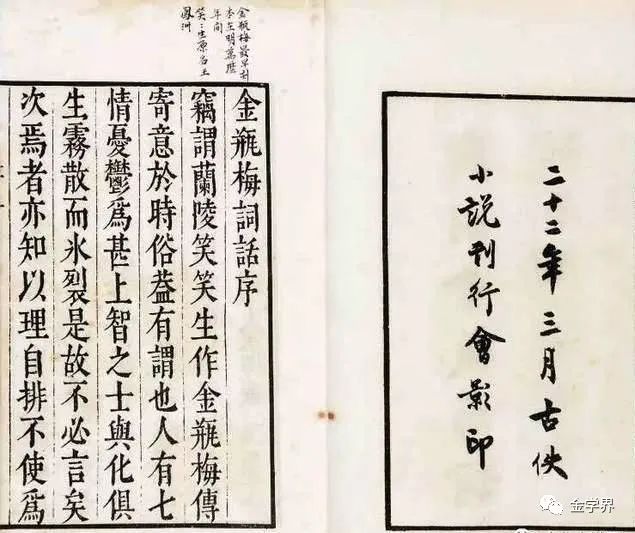 二十二年三月古佚
小説刊行會影印
金瓶梅最早刻
本在明萬歷
年间
笑〻生原名王
鳳洲
金瓶梅詞話序
竊謂蘭陵笑笑生作金瓶梅傳
寄意於時俗葢有謂也人有七
情憂鬱爲甚上智之士與化俱
生霧散而氷裂是故不必言矣
次焉者亦知以理自排不使爲
金学界